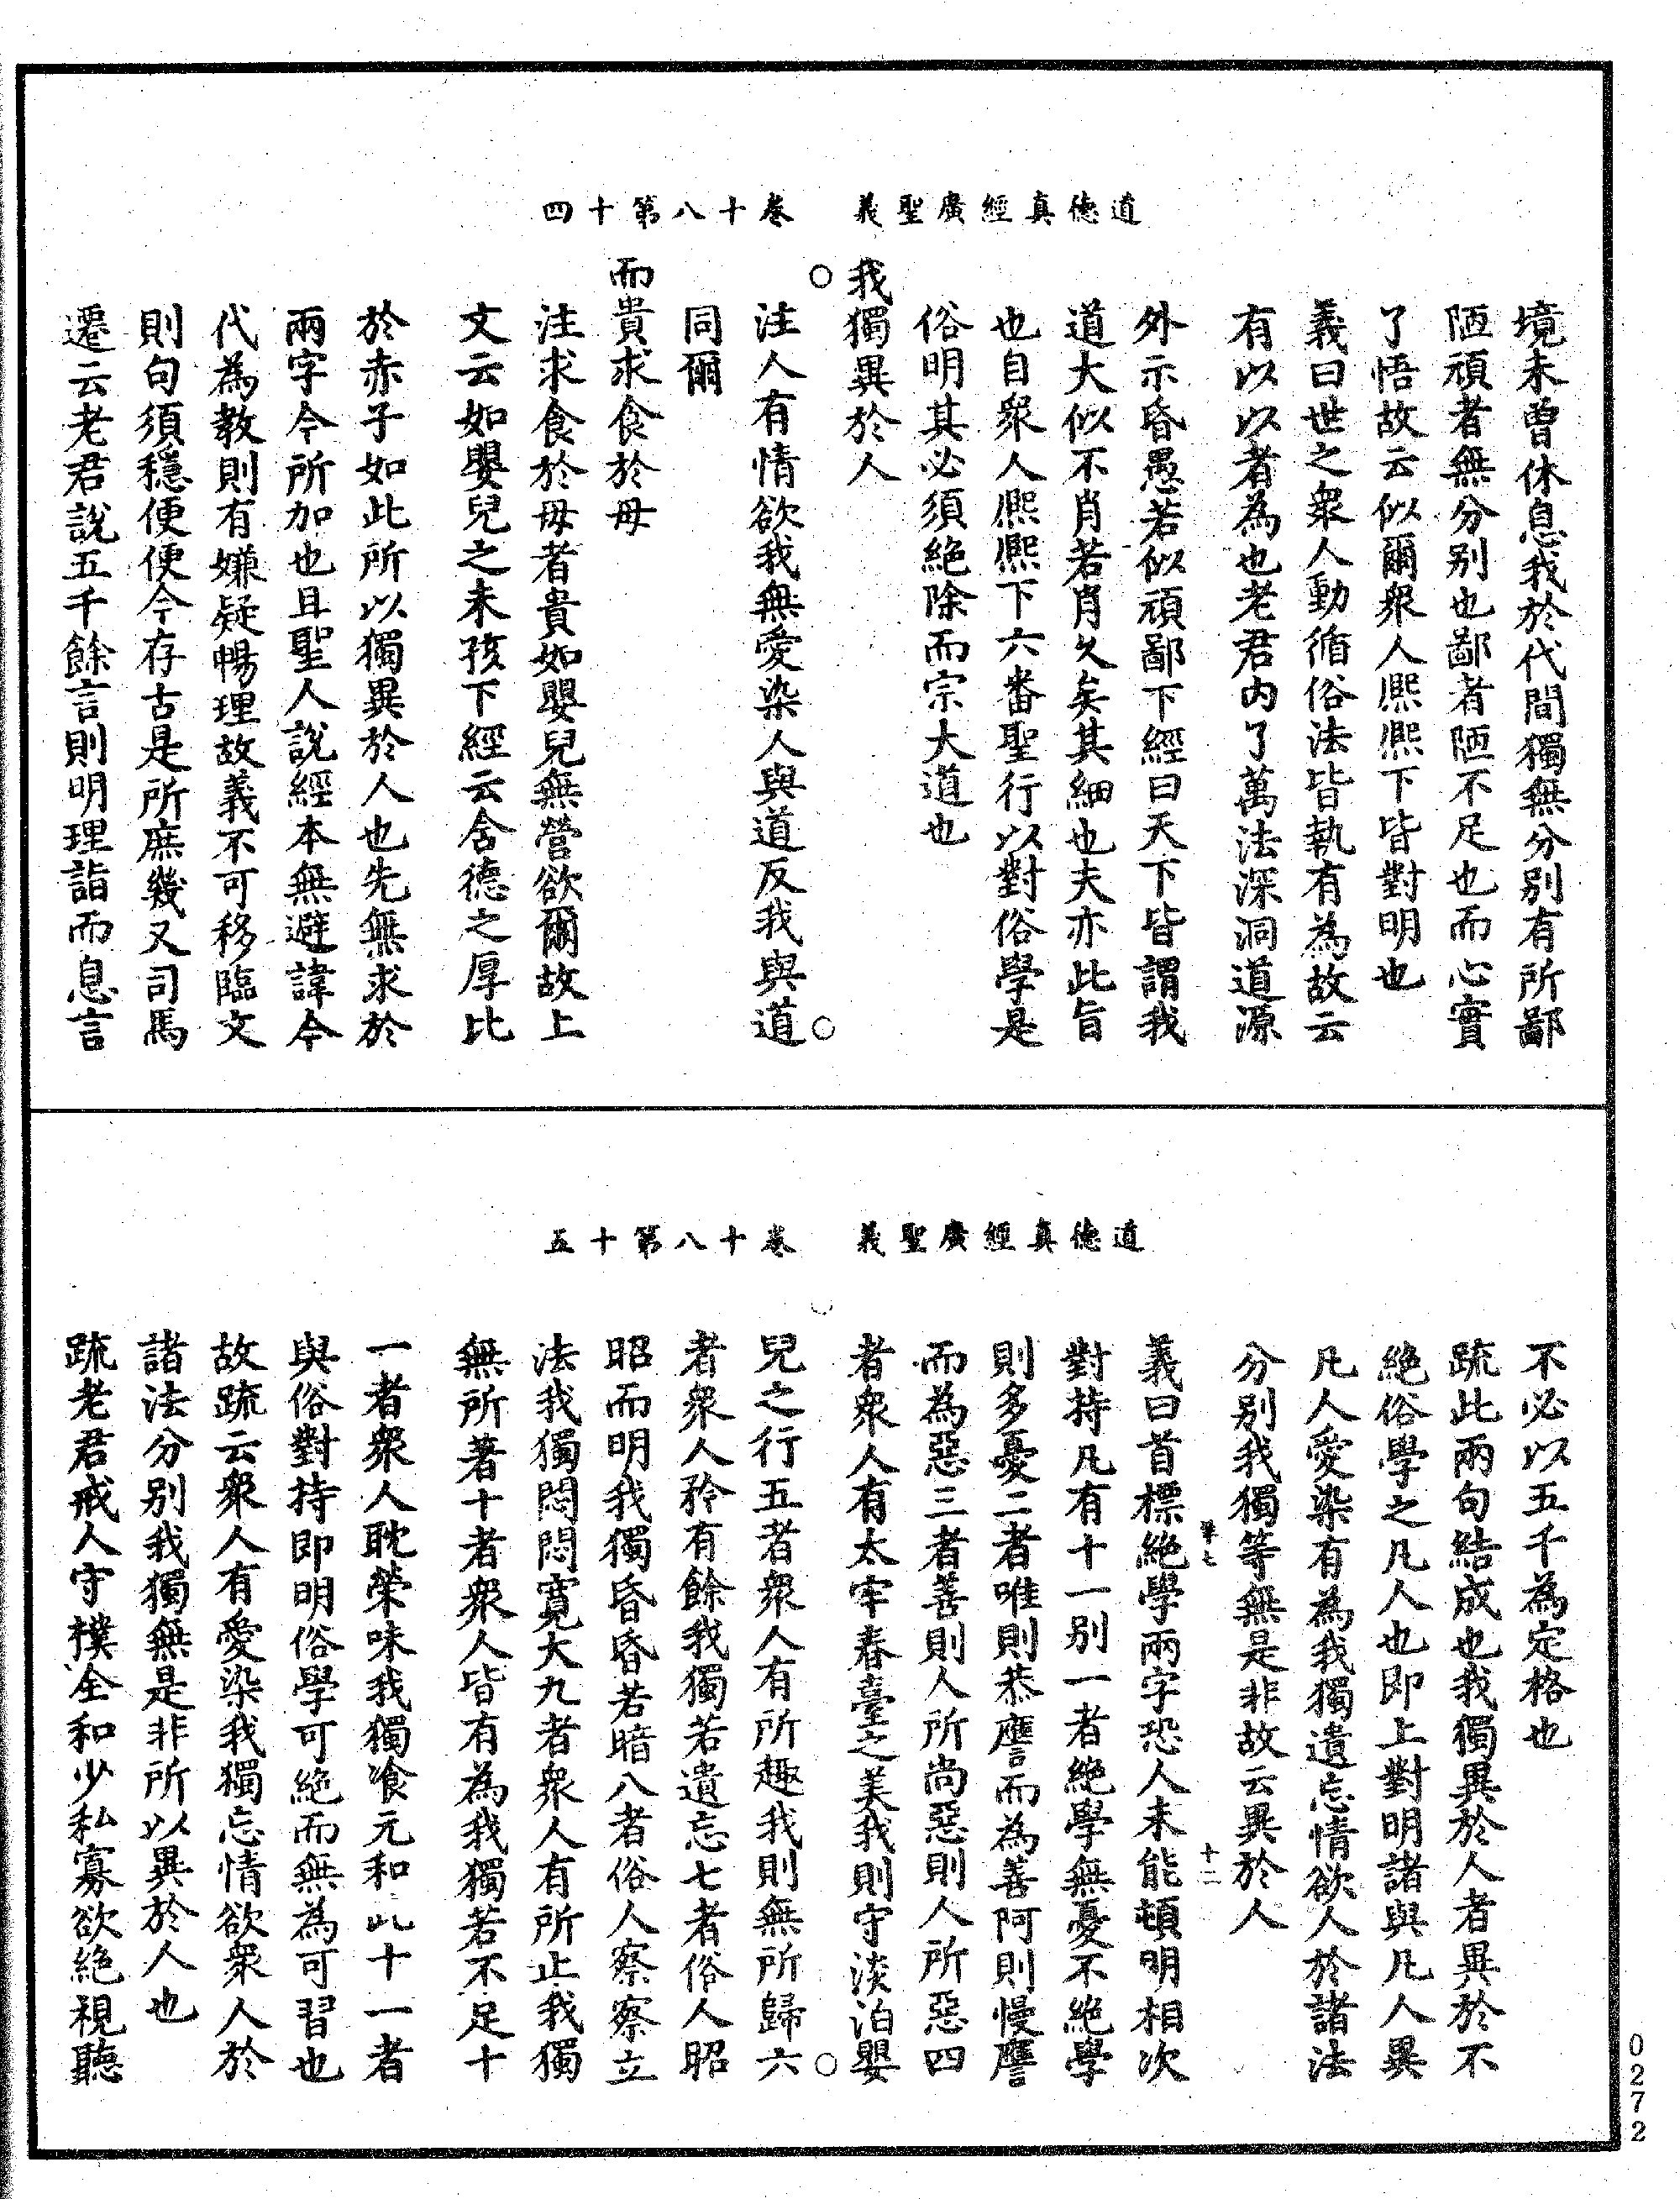 道德真經廣聖義　卷十八第十四
境未曾休息我於代間獨無分別有所鄙
陋頑者無分別也鄙者陋不足也而心實
了悟故云似爾衆人熈熈下皆對明也
義曰世之衆人動循俗法皆執有為故云
有以以者為也老君内了萬法深洞道源
外示昏愚若似頑鄙下下經曰天下皆謂我
道大似不肖若肖久矣其細也夫亦此旨
也自衆人熈熈下六番聖行以對俗學是
俗明其必須絶除而宗大道也
我獨異於人
注人有情欲我無愛染人與道反我與道
同爾
而貴求食於母
注求食於母者貴如嬰兒無營欲爾故上
文云如嬰兒之未孩下經云含德之厚比
於赤子如此所以獨異於人也先無求於
兩字今所加也且聖人說經本無避諱今
代為教則有嫌疑暢理故義不可移臨文
則句須穩便便今存古是所庶幾又司馬
遷云老君說五千餘言則明理詣而息言
道德真經廣聖義　卷十八第十五
不必以五千為定格也
疏此兩句結成也我獨異於人者異於不
絶俗學之凡人也即上對明諸與凡人異
凡人愛染有為我獨遺忘情欲人於諸法
分別我獨等無是非故云異於人
義曰首標絶學兩字恐人未能頓明相次
對持凡有十一別一者絶學無憂不絶學
則多憂二者唯則恭譍而為善阿則慢譍
而為惡三者善則人所尚惡則人所惡四
者衆人有太牢春臺之美我則守淡泊嬰
兒之行五者衆人有所趣我則無所歸六
者衆人矜有餘我獨若遺忘七者俗人昭
昭而明我獨昏昏若暗八者俗人察察立
法我獨悶悶寬大九者衆人有所止我獨
無所著十者衆人皆有為我獨若不足十
一者衆人耽榮味我獨飡元和此十一者
與俗對持即明俗學可絶而無為可習也
故疏云衆人有愛染我獨忘情欲衆人於
諸法分別我獨無是非所以異於人也
疏老君戒人守樸全和少私寡欲絶視聽
十二
0272